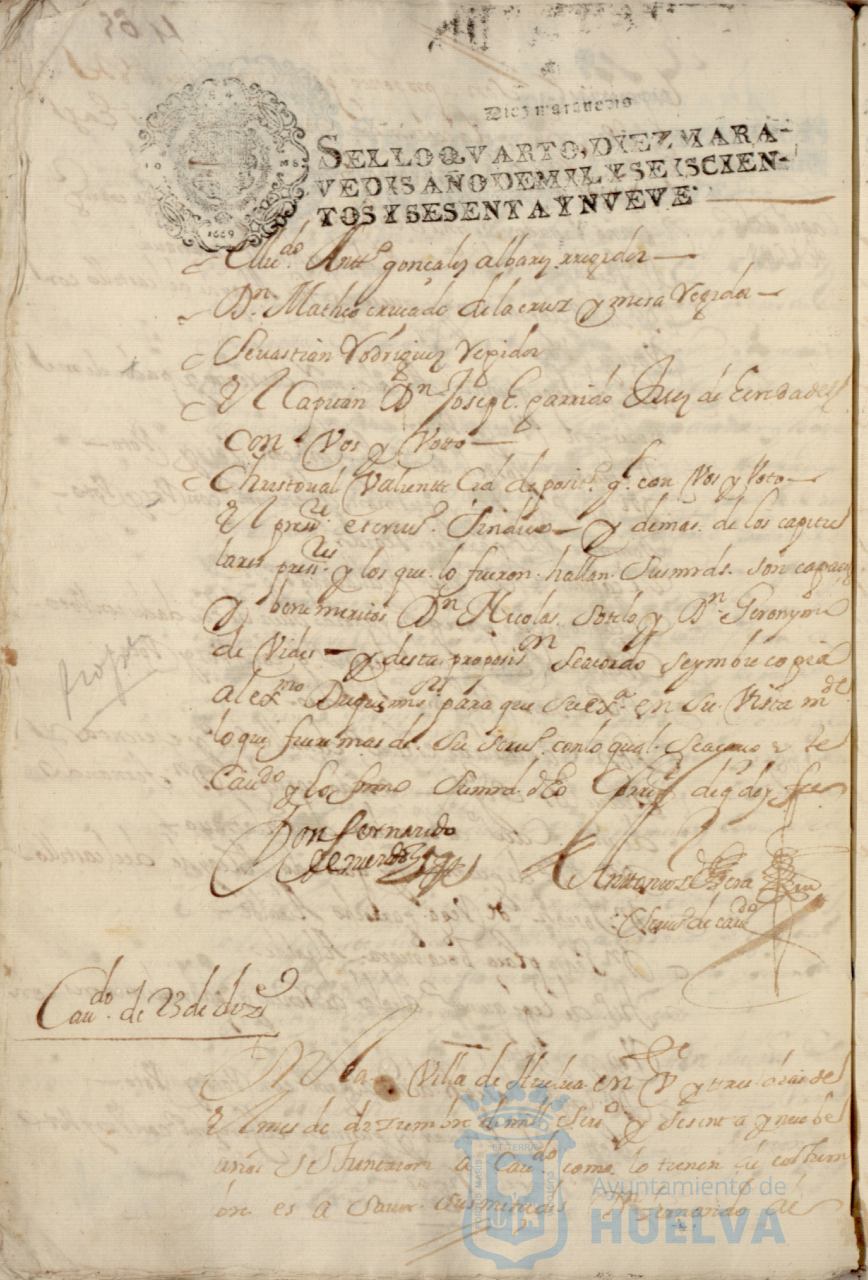 Diez maravedis
SELLO QVARTO, DIEZ MARA-
VEDIS AÑO DE MIL Y SEISCIEN-
TOS Y SESENTA Y NVEVE
1669
Lliz.do Antt.o gonçales albares rregidor
D.n Matheo crucado de la cruz y mesa Regidor
Sevastian Rodriguez Regidor
El Capitan D.n Josep garrido Juez de Eredades
con Vos y Votto
Christoval Valiente Cid deposit.o g.l con Vos y Voto
El press.te escriv.o Sindico y demas de los capitu
lares press.tes y los que lo fueron hallan Susmrds. son capaces
y benemeritos D.n Nicolas Sotelo y D.n Geronymo
de Vides y desta proposis.on se acordo se ymbie copia
al ex.mo Duque mi s.or para que su ex.a en su Vista m.de
lo que fuere mas de su serv.o con lo qual se acavo este
Cav.do y lo firmo Sumrd. dho Corr.r de q doy fee
Don fernando
Antonio de
Scriv.o de cav.do
Cav.do de 23 de diz.e
En la Villa de Huelva en V.te y tres dias del
El mes de diziembre de mill Seis.o y sesenta y nuebe
años se Juntaron a Cav.do como lo tienen de costum
bre es a saver Susmercedes D.n fernando de
Ayuntamiento de
HUELVA